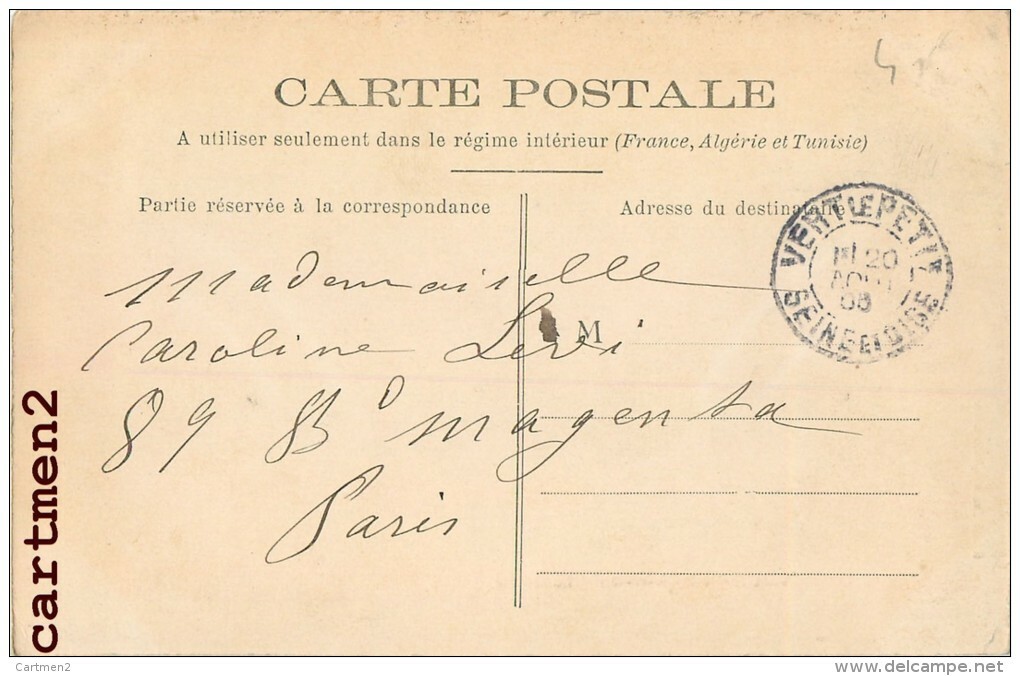 4
CARTE POSTALE
A utiliser seulement dans le régime intérieur (France, Algérie et Tunisie)
Partie réservée à la correspondance
Adresse du destinataire
VERT LE PETIT
20
AOUT
SEINE ET OISE
Mademoiselle
M
Caroline Levi
89 Bd Magenta
Paris
cartmen2
Cartmen2
delcampe.net